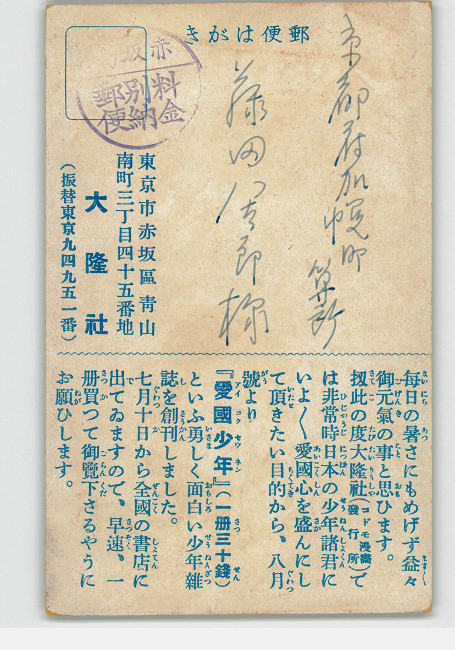 きがは便郵
赤坂
料金別納郵便
京都府加悦町
算所
藤田
郎様
東京市赤坂區靑山
南町三丁目四十五番地
大隆社
（振替東京九四九五一番）
毎日の暑さにもめげず益々
御元氣の事と思ひます。
扨此の度大隆社（コドモ漫畫發行所）で
は非常時日本の少年諸君に
いよ〱愛國心を盛んにし
て頂きたい目的から、八月
號より
『愛國少年』（一册三十錢）
といふ勇しく面白い少年雜
誌を創刊しました。
七月十日から全國の書店に
出てゐますので、早速、一
册買つて御覽下さるやうに
お願ひします。